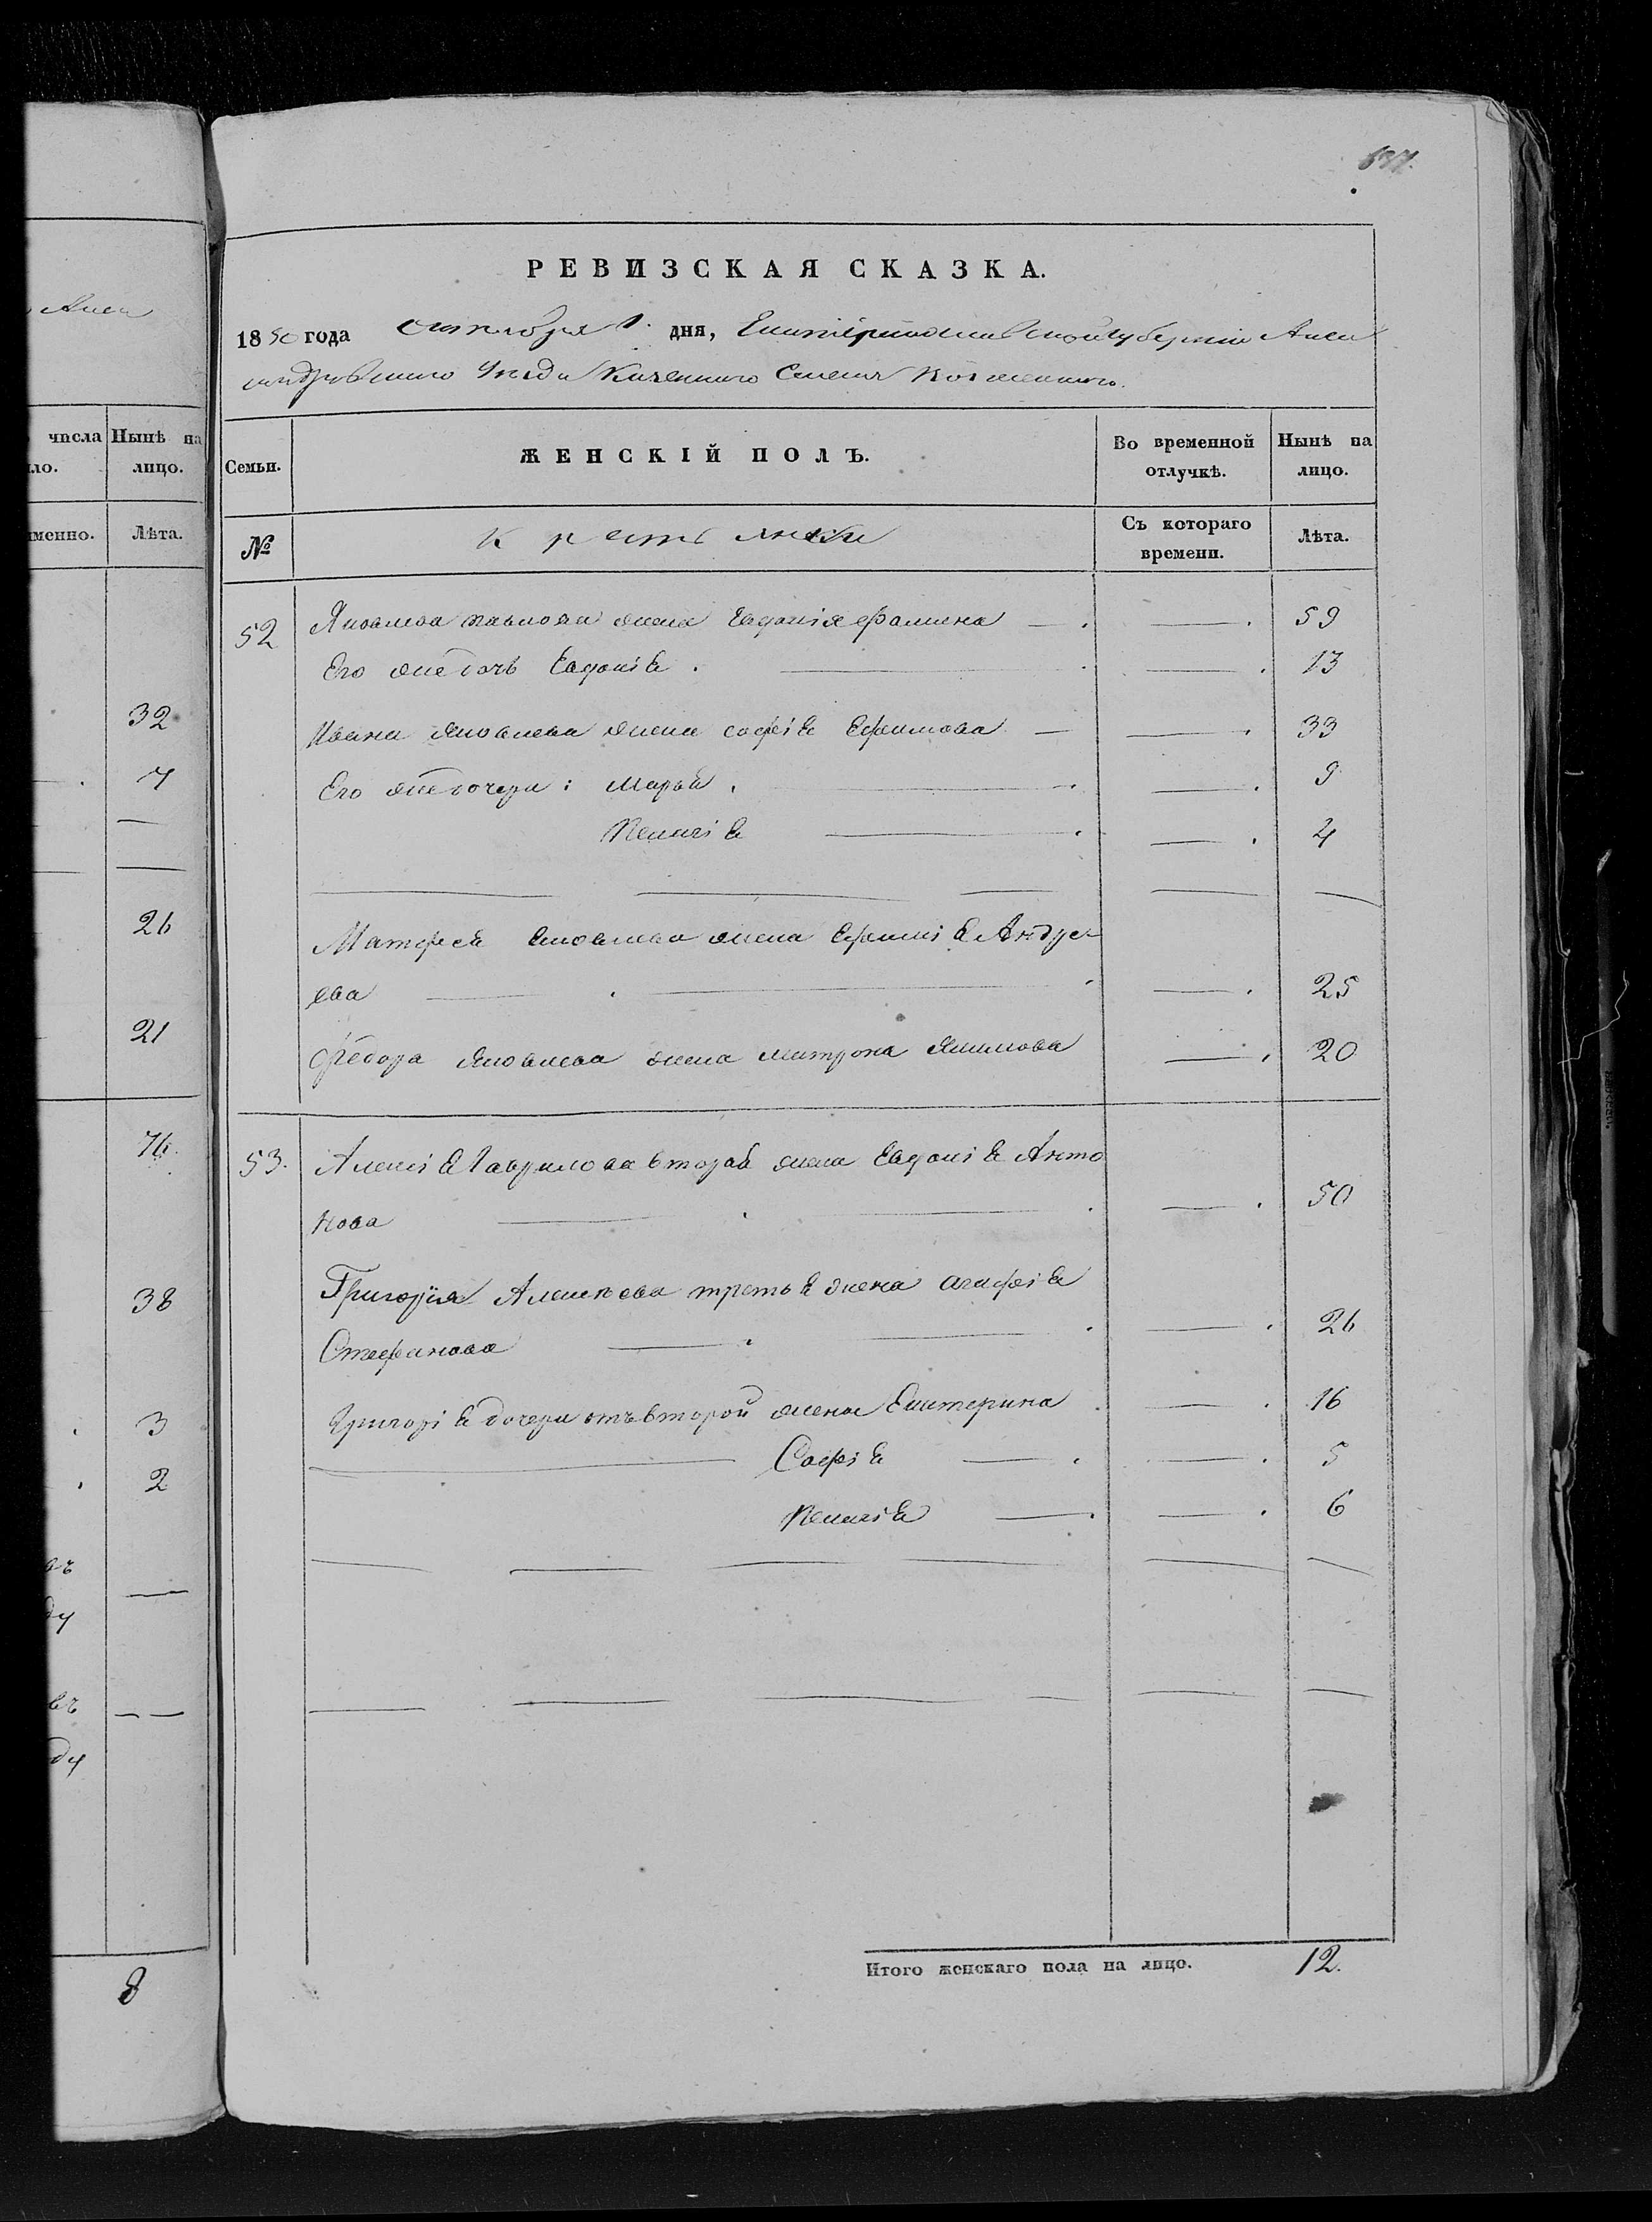 637.
РЕВИЗСКАЯ СКАЗКА.
1850 года октября 1. дня, Екатеринославской губернии Алек
сандровскаго уезда Казеннаго Селения
ЖЕНСКІЙ ПОЛЪ.
Семьи.
Во временной отлучкѣ.
Нынѣ на лицо.
№
Крестьянки
Съ котораго времени.
Лѣта.
52
Яковлева жена Евдокія Фомина 59
Его же дочь Евдокія . 13
Ивана Яковлева жена софія Ефимова 33
Его же дочери : Марья . 9
Пелагія 4
Матфея Яковлева жена Ефимія Андре
ева 25
Федора Яковлева жена матрона Якимова 20
53.
Алексія Гаврилова вторая жена Евдокія Анто
нова 50
Григорія Алексѣева третья жена агафія
Стефанова 26
Григорія дочери отъ второй жены Екатерина 16
Софія 5
Пелагія 6
Итого женскаго пола на лицо. 12.
числа
Нынѣ на
ло.
лицо.
менно.
Лѣта.
32
7
26
21
76.
38
3
2
8